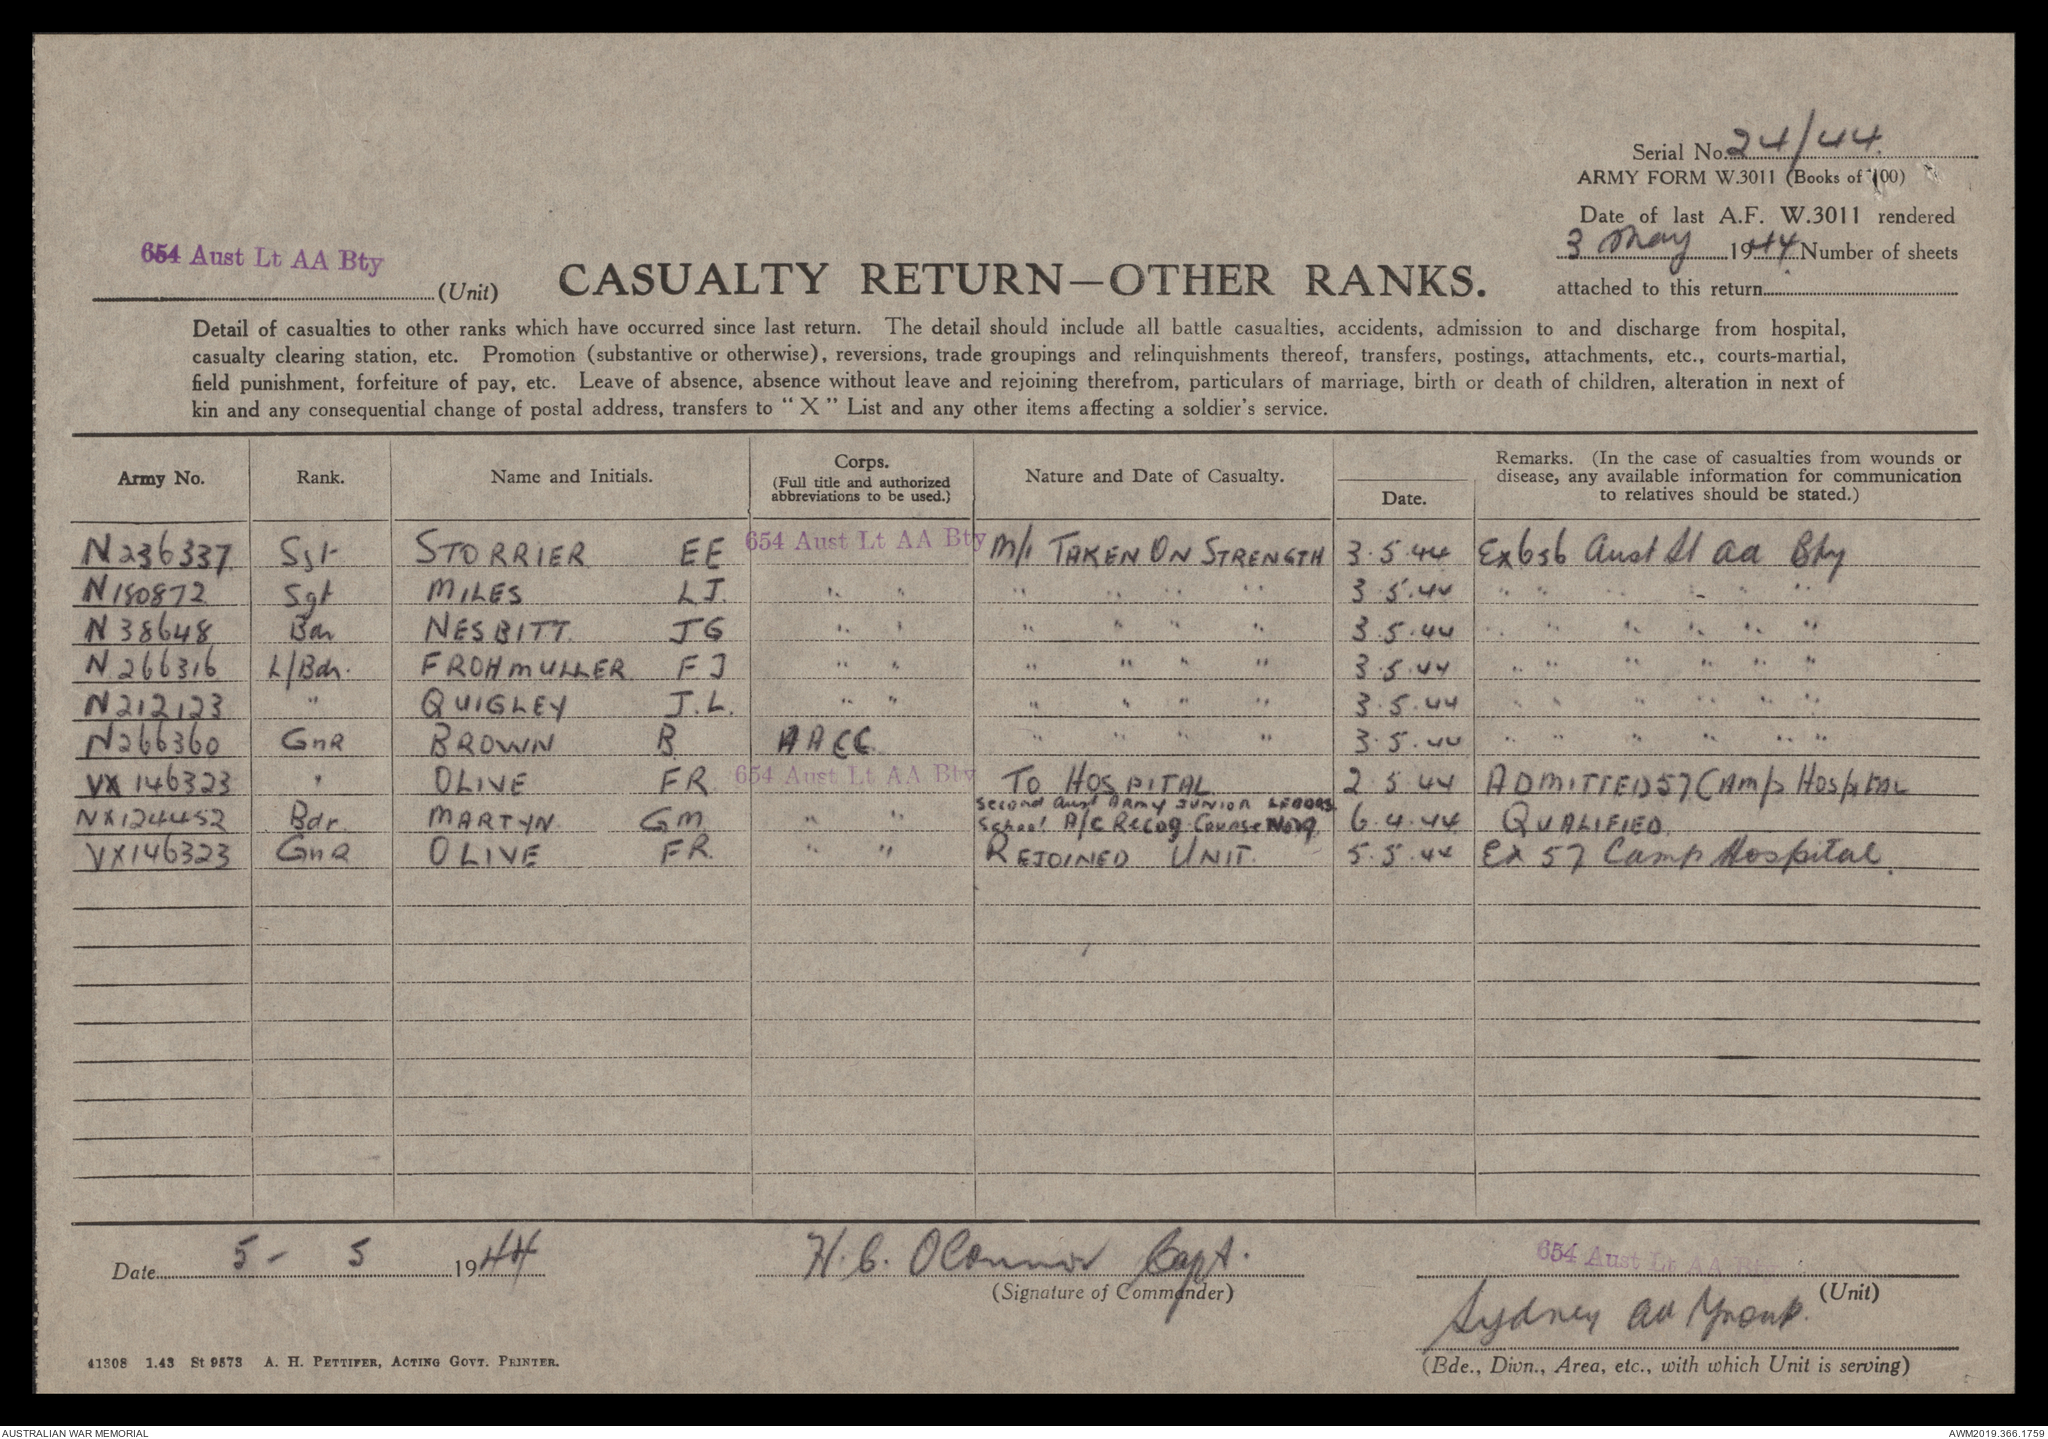 Serial No. 24/44.
ARMY FORM W.3011 (Books of 100)
Date of last A.F. W.3011 rendered
3 May 1944 Number of sheets
attached to this return
654 Aust Lt AA Bty
(Unit)
CASUALTY RETURN—OTHER RANKS.
Detail of casualties to other ranks which have occurred since last return. The detail should include all battle casualties, accidents, admission to and discharge from hospital,
casualty clearing station, etc. Promotion (substantive or otherwise), reversions, trade groupings and relinquishments thereof, transfers, postings, attachments, etc., courts-martial,
field punishment, forfeiture of pay, etc. Leave of absence, absence without leave and rejoining therefrom, particulars of marriage, birth or death of children, alteration in next of
kin and any consequential change of postal address, transfers to "X" List and any other items affecting a soldier's service.
Army No. Rank. Name and Initials. Corps. (Full title and authorized abbreviations to be used.) Nature and Date of Casualty. Date. Remarks. (In the case of casualties from wounds or disease, any available information for communication to relatives should be stated.)
N236337 Sgt STORRIER EE 654 Aust Lt AA Bty M/I TAKEN ON STRENGTH 3.5.44 Ex 656 Aust Lt aa Bty
N180872 Sgt MILES LJ. " " " " " " 3.5.44 " " " " " "
N38648 Bdr NESBITT. JG " " " " " " 3.5.44 " " " " " "
N266316 L/Bdr. FROHMULLER FJ " " " " " " 3.5.44 " " " " " "
N212123 " QUIGLEY J.L. " " " " " " 3.5.44 " " " " " "
N266360 GnR BROWN B AACC " " " " 3.5.44 " " " " " "
VX146323 " OLIVE FR. 654 Aust Lt AA Bty TO HOSPITAL 2.5.44 ADMITTED 57 CAMP HOSPITAL
NX124452 Bdr MARTYN. GM " " Second Aust ARMY JUNIOR LEADRS School A/C Recog. Course No 9. 6.4.44 QUALIFIED
VX146323 GnR OLIVE FR. " " REJOINED UNIT. 5.5.44 Ex 57 Camp Hospital.
Date 5 - 5 1944
H.C. OConnor Capt.
(Signature of Commander)
654 Aust Lt AA Bty
(Unit)
Sydney aa Group.
(Bde., Divn., Area, etc., with which Unit is serving)
41308 1.43 St 9573 A. H. PETTIFER, ACTING GOVT. PRINTER.
AUSTRALIAN WAR MEMORIAL
AWM2019.366.1759